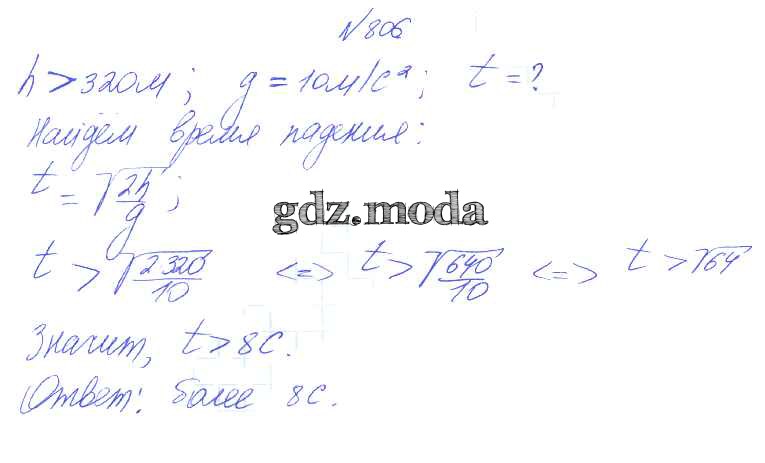 №806
h > 320м; g = 10м/с²; t = ?
Найдём время падения:
t = √(2h/g);
gdz.moda
t > √(2 320/10) <=> t > √(640/10) <=> t > √64
Значит, t > 8с.
Ответ: более 8с.